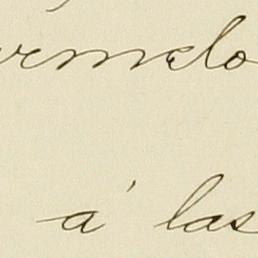 rmelo
á las